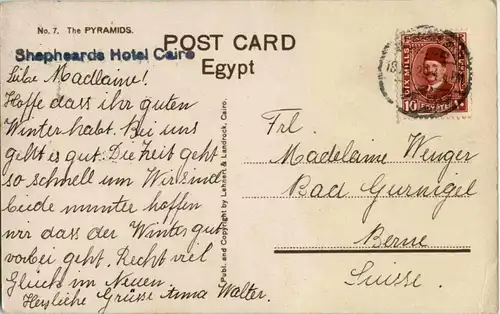 No. 7. The PYRAMIDS.
Shepheards Hotel Cairo
POST CARD
Egypt
Liebe Madlaine!
Hoffe dass ihr guten
Winter habt. Bei uns
geht es gut. Die Zeit geht
so schnell um Wir sind
beide munter hoffen
wir dass der Winter gut
vorbei geht. Recht viel
Glück im Neuen.
Herzliche Grüsse Anna Walter.
Publ. and Copyright by Lehnert & Landrock, Cairo.
Frl.
Madelaine Wenger
Bad Gurnigel
Berne
Suisse.
POSTES
10